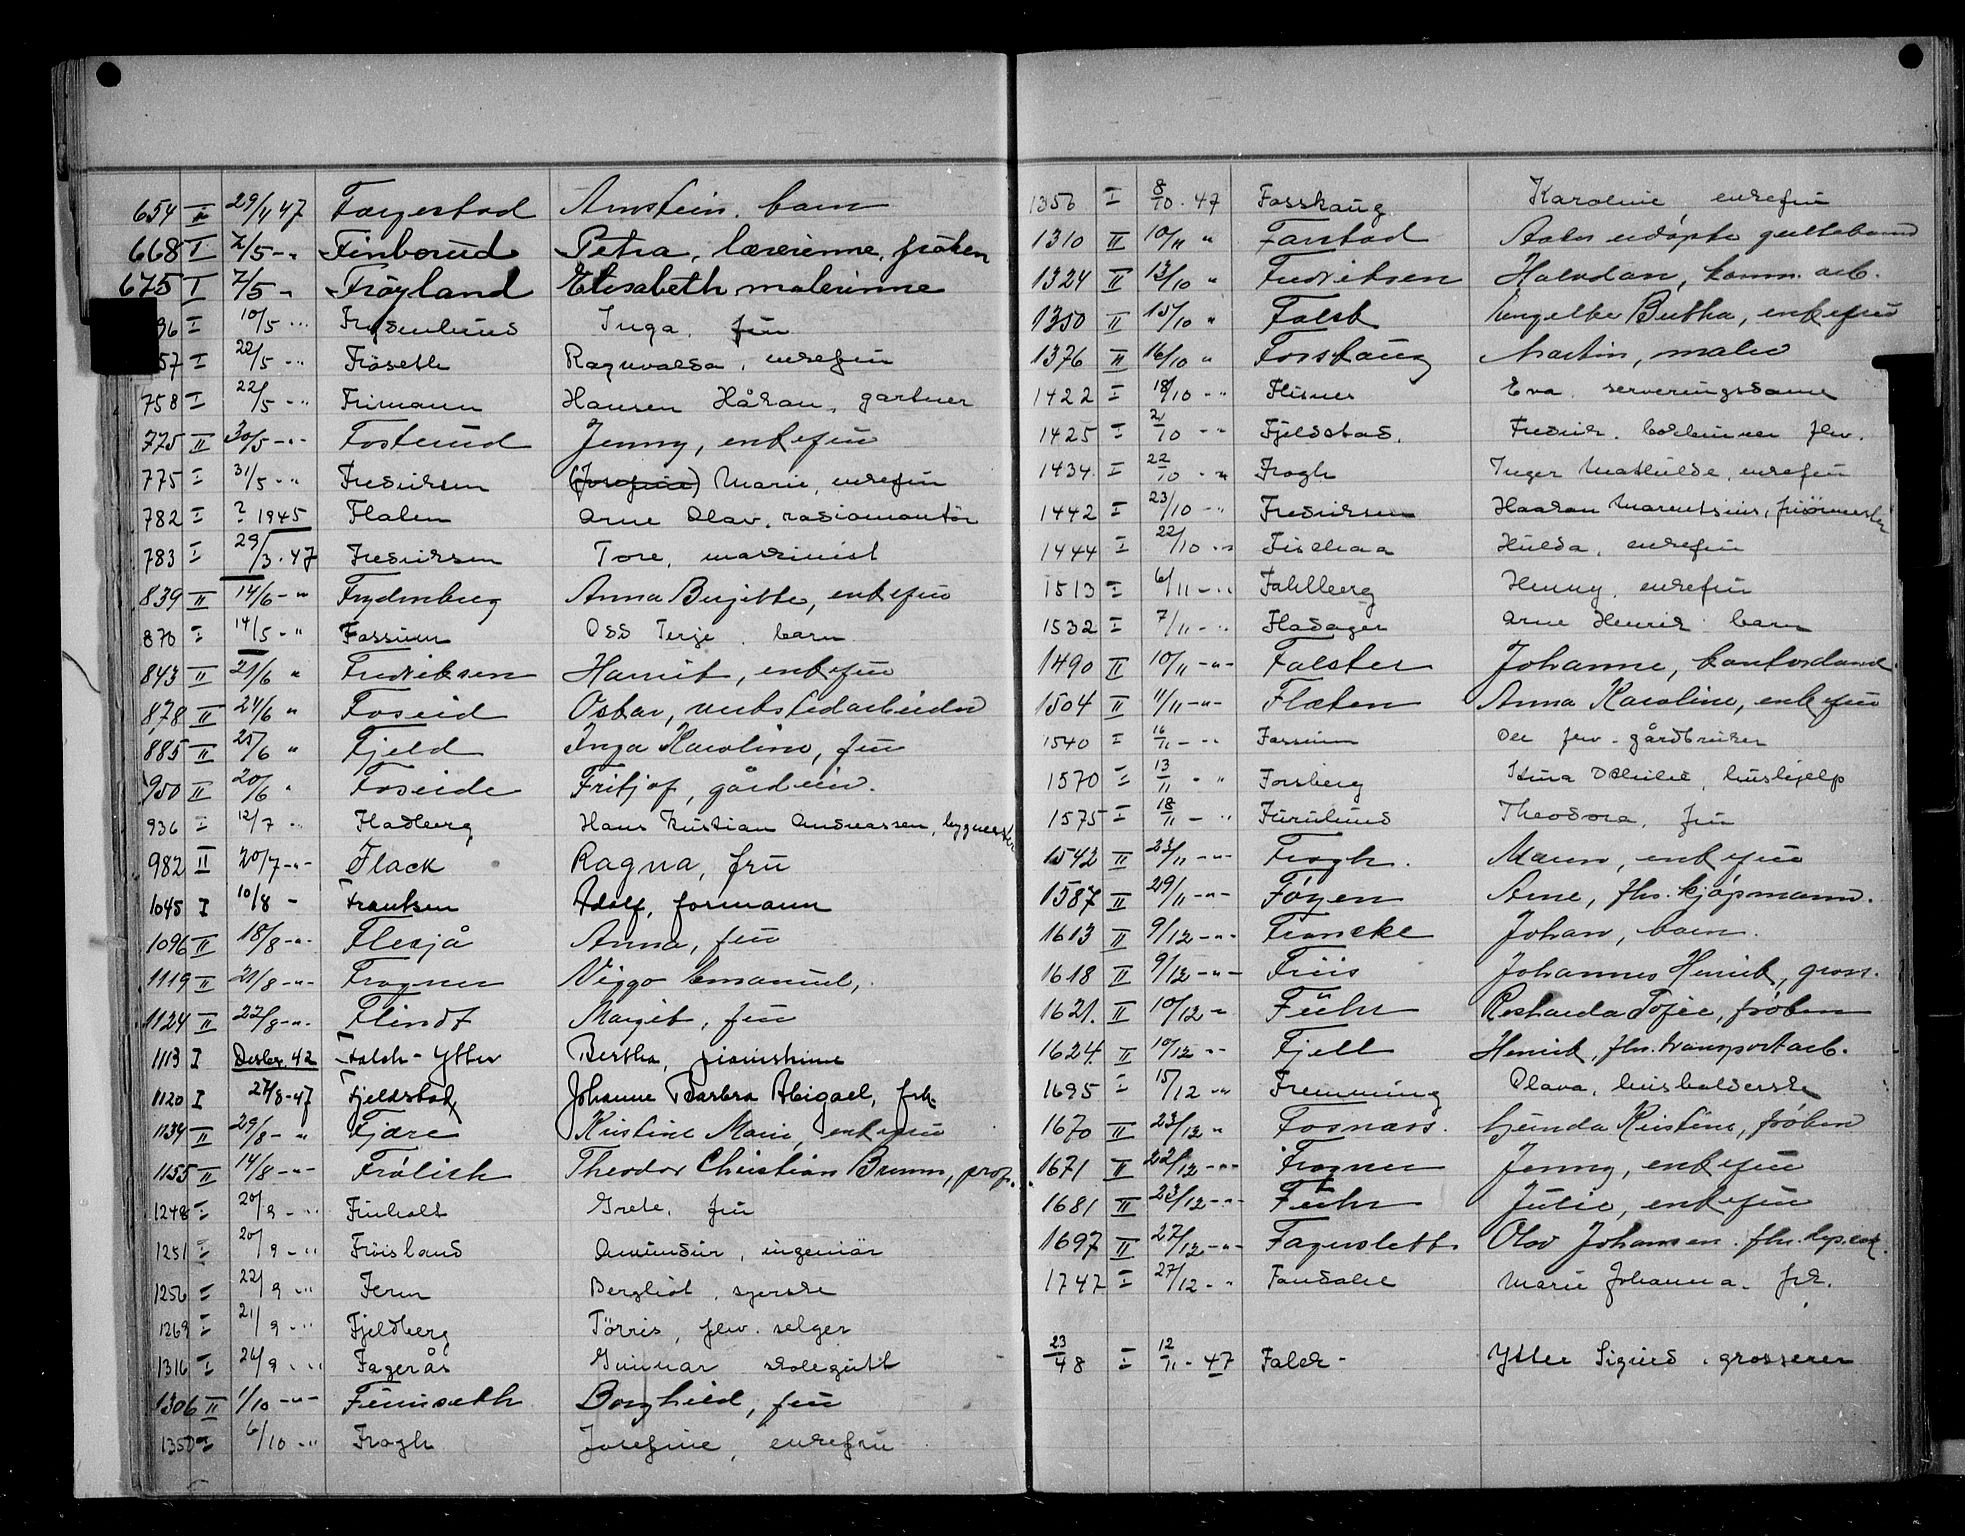 654 II 29/4 47 Færgestad Arnstein. barn
668 I 2/5 -" Finborud Petra, lærerinne, frøken
675 I 7/5 " Frøyland Elisabeth malerinne
36 I 10/5 -" Fredenlund Inga. fru
57 I 22/5 -" Frøseth Ragnvalda, enkefru
758 I 22/5 -" Frimann Hansen Håkan, gartner
775 II 30/5 -"- Fosterud Jenny, enkefru
775 I 31/5 -" Fredriksen (Josefine) Marie, enkefru
782 I ? 1945 Flalen Arne Olav, radiomontør
783 I 29/3. 47 Fredriksen Tore, maskinist
839 II 14/6 -" Frydenberg Anna Birgitte, enkefru
870 I 14/5 -" Fossum Odd Terje. barn
843 II 21/6 " Fredriksen Harriet, enkefru
878 II 24/6 " Foseid Oskar, verkstedarbeider
885 II 25/6 " Fjeld Inga Karoline, fru
950 II 20/6 " Foseide Fritjof, gårdeier.
936 I 12/7 " Fladberg Hans Kristian Andreassen, byggmester
982 II 20/7 -"- Flack Ragna, fru
1045 I 10/8 - Frantzen Adolf, formann
1096 II 18/8 -"- Flesjå Anna, fru
1119 II 21/8 -"- Frogner Viggo Emanuel,
1124 II 22/8 -"- Flindt Margit, fru
1113 I Desbr. 42 Falch-Ytter Bertha, pianistinne
1120 I 27/8-47 Fjeldstad Johanne Barbra Abigael, frk.
1134 II 29/8 - " Fjære Kristine Marie, enkefru
1155 II 14/8 -"- Frølich Theodor Christian Brunn, prof.
1248 I 20/9 -" Finholt Grete. fru
1251 I 20/9 -" Frøisland Amundur, ingeniør
1256 I 22/9 -" Ferm Bergliot, syerske
1269 I 21/9 -" Fjeldberg Tørris, fhv. selger
1316 I 26/9 -" Fagerås Gunnar skolegutt
1306 II 1/10 -"- Finnseth Borghild, fru
1350 I 6/10 -" Frogh Josefine, enkefru
1356 I 8/10. 47 Fosshaug Karoline enkefru
1310 II 10/11 " Farstad udøpte guttebarn
1324 II 13/10 " Fredriksen Halvdan, komm. arb.
1350 II 15/10 " Falst Engelke Bertha, enkefru
1376 II 16/10 " Forshaug Martin, maler
1422 I 18/10 -" Flisnes Eva serveringsdame
1425 I 2/10 -" Fjeldstad. Fredrik. fhv.
1434 I 22/10 -" Frogh Inger Mathilde, enkefru
1442 I 23/10 -" Fredriksen Haakon Marentsius, frisørmester
1444 I 22/10 -" Fischaa Hulda, enkefru
1513 I 6/11 -" Fahlberg Henny, enkefru
1532 I 7/11 -" Fladager Arne Henrik barn
1490 II 10/11 -"- Falster Johanne, kontordame
1504 II 11/11 -"- Flaten Anna Karoline, enkefru
1540 I 16/11 -" Fossum Ole fhv. gårdbruker
1570 I 13/11 -" Forsberg Stina Othilie, hushjelp
1575 I 18/11 -" Furulund Theodora, fru
1542 II 23/11 -"- Frogh. Maren, enkefru
1587 II 29/11 -"- Føyen Arne, fhv. kjøpmann.
1613 II 9/12 -"- Francke Johan, barn.
1618 II 9/12 -"- Friis Johannes Henrik, gross.
1621. II 10/12 -" Führ Rikharda Sofie, frøken
1624. II 10/12 -" Fjell Henrik, fhv. transportarb.
1695 I 15/12 -" Fremming Olava, husholderske
1670 II 23/12 " Fosnæss. Gunda Kristine, frøken
1671 II 22/12 -"- Frogner Jenny, enkefru
1681 II 23/12 -"- Führ Julie, enkefru
1697 II 27/12 -"- Fagerslett Olav Johansen. fhv.
1747 I 27/12 -" Fandalie Marie Johanna. frk.
23/48 I 12/11 - 47 Falck - Ytter Sigurd. grosserer